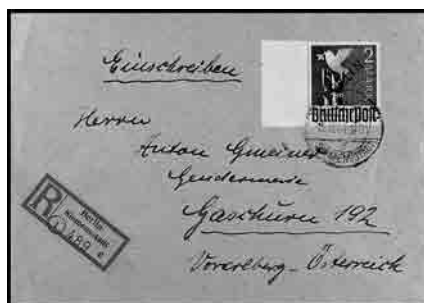 Einschreiben
2
Herrn
Anton Gmeiner
Gendarmerie
Gaschurn 192
Vorarlberg - Österreich
R
Berlin
489 e